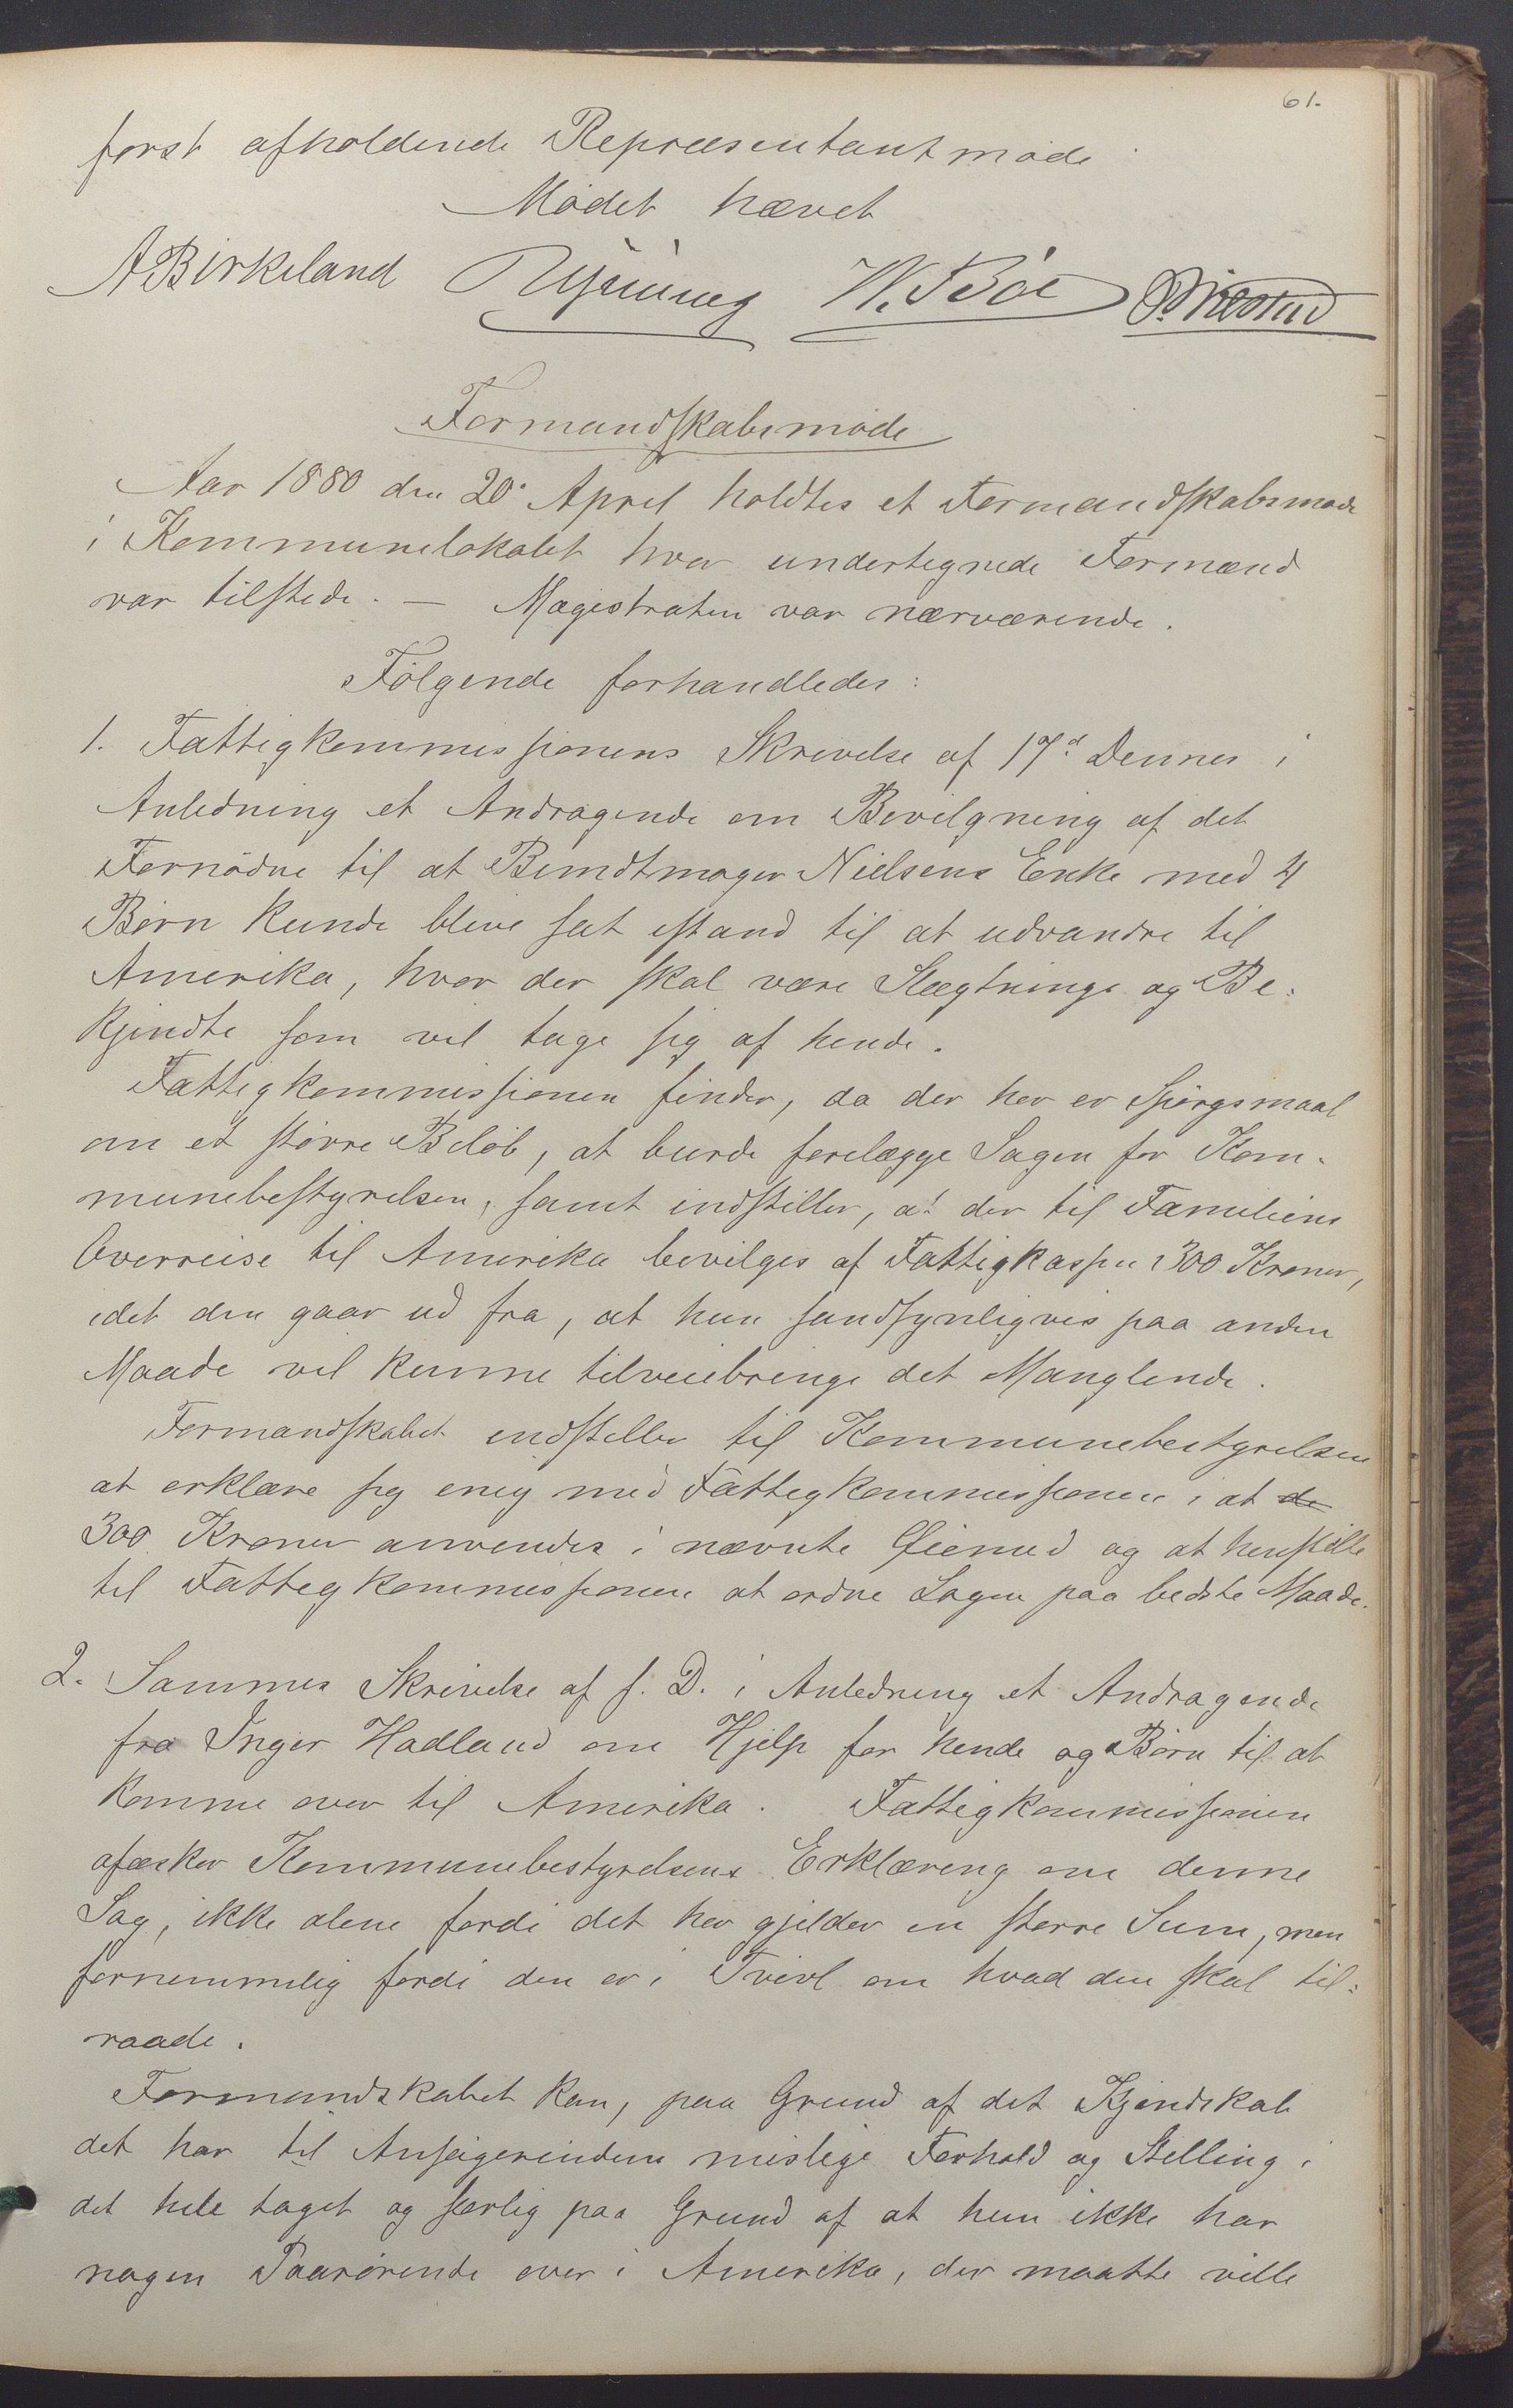 61.
først afholdende Repræsentantmøde
Mødet hævet
A Birkeland W. Bøe
Formandskabsmøde
Aar 1880 den 20. April holdtes et Formandskabsmøde
i Kommunelokalet hvor undertegnede Formænd
var tilstede. — Magistraten var nærværende.
Følgende forhandledes:
1. Fattigkommissionens Skrivelse af 17d Dennes i
Anledning et Andragende om Bevilgning af det
Fornødne til at Bundtmager Nielsens Enke med 4
Børn kunde blive sat istand til at udvandre til
Amerika, hvor der skal være Slægtninge og Be-
kjendte som vil tage sig af hende.
Fattigkommissionen finder, da der her er Spørgsmaal
om et større Beløb, at burde forelægge Sagen for Kom-
munebestyrelsen, samt indstiller, at der til Familiens
Overreise til Amerika bevilges af Fattigkassen 300 Kroner,
idet den gaar ud fra, at hun sandsynligvis paa anden
Maade vil kunne tilveiebringe det Manglende.
Formandskabet indstiller til Kommunebestyrelsen
at erklære sig enig med Fattigkommissionen i at de
300 Kroner anvendes i nævnte Øiemed og at henstille
til Fattigkommissionen at ordne Sagen paa bedste Maade.
2. Sammes Skrivelse af s. D. i Anledning et Andragende
fra Inger Hadland om Hjelp for hende og Børn til at
komme over til Amerika. Fattigkommissionen
afæsker Kommunebestyrelsens Erklæring om denne
Sag, ikke alene fordi det her gjelder en større Sum, men
fornemmelig fordi den er i Tvivl om hvad den skal til-
raade.
Formandskabet kan, paa Grund af det Kjendskab
det har til Ansøgerindens mislige Forhold og Stilling i
det hele taget og særlig paa Grund af at hun ikke har
nogen Paarørende over i Amerika, der maatte ville